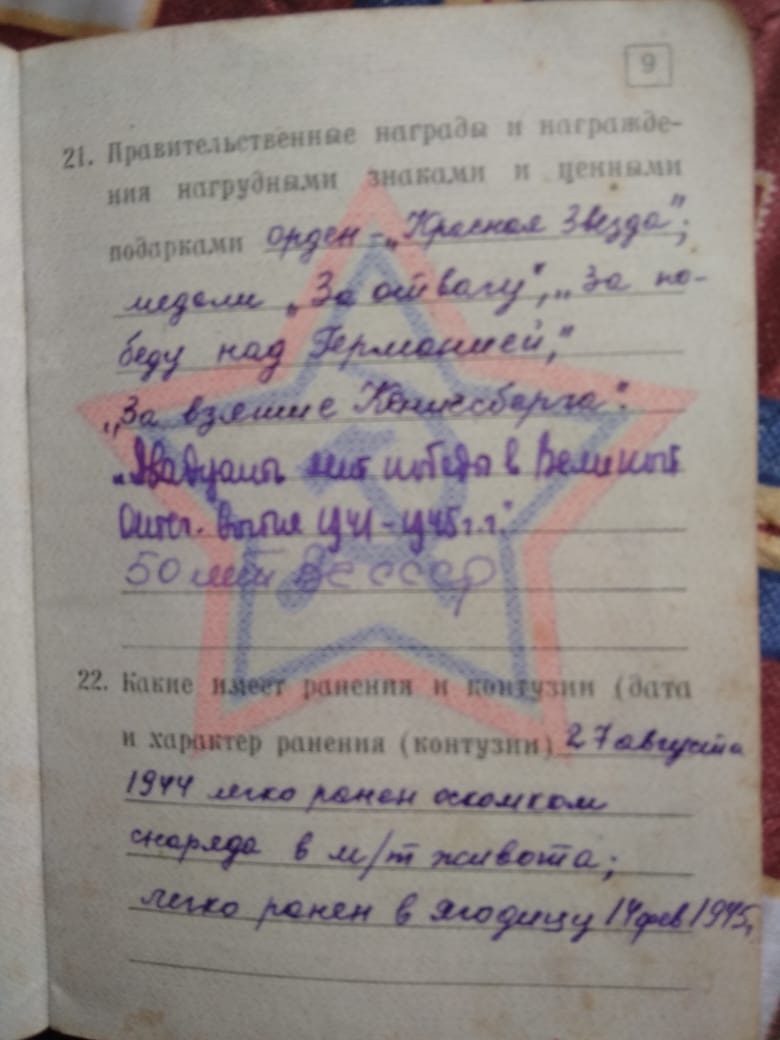 9
21. Правительственные награды и награжде-
ния нагрудными знаками и ценными
подарками орден - „Красная Звезда";
медали „За отвагу", „За по-
беду над Германией,"
„За взятие Кенигсберга".
„Двадцать лет победы в Великой
Отеч. войне 1941-1945 г.г."
50 лет ВС СССР
22. Какие имеет ранения и контузии (дата
и характер ранения (контузии) 27 августа
1944 легко ранен осколком
снаряда в м/т живота;
легко ранен в ягодицу 14 фев 1945,